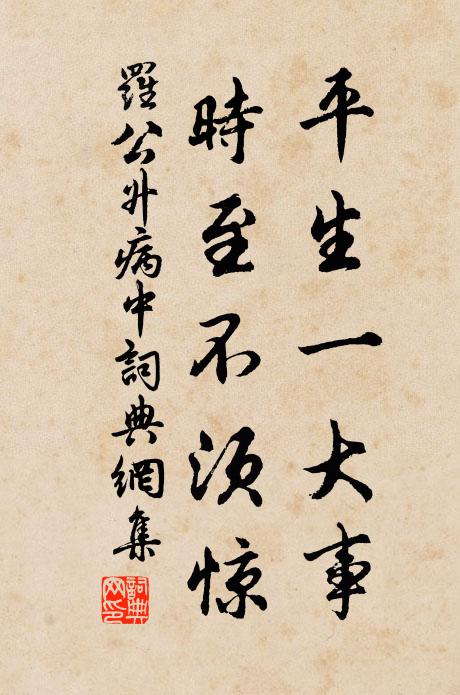 平生一大事
時至不須惊
羅公升病中詞典網集
詞典網印